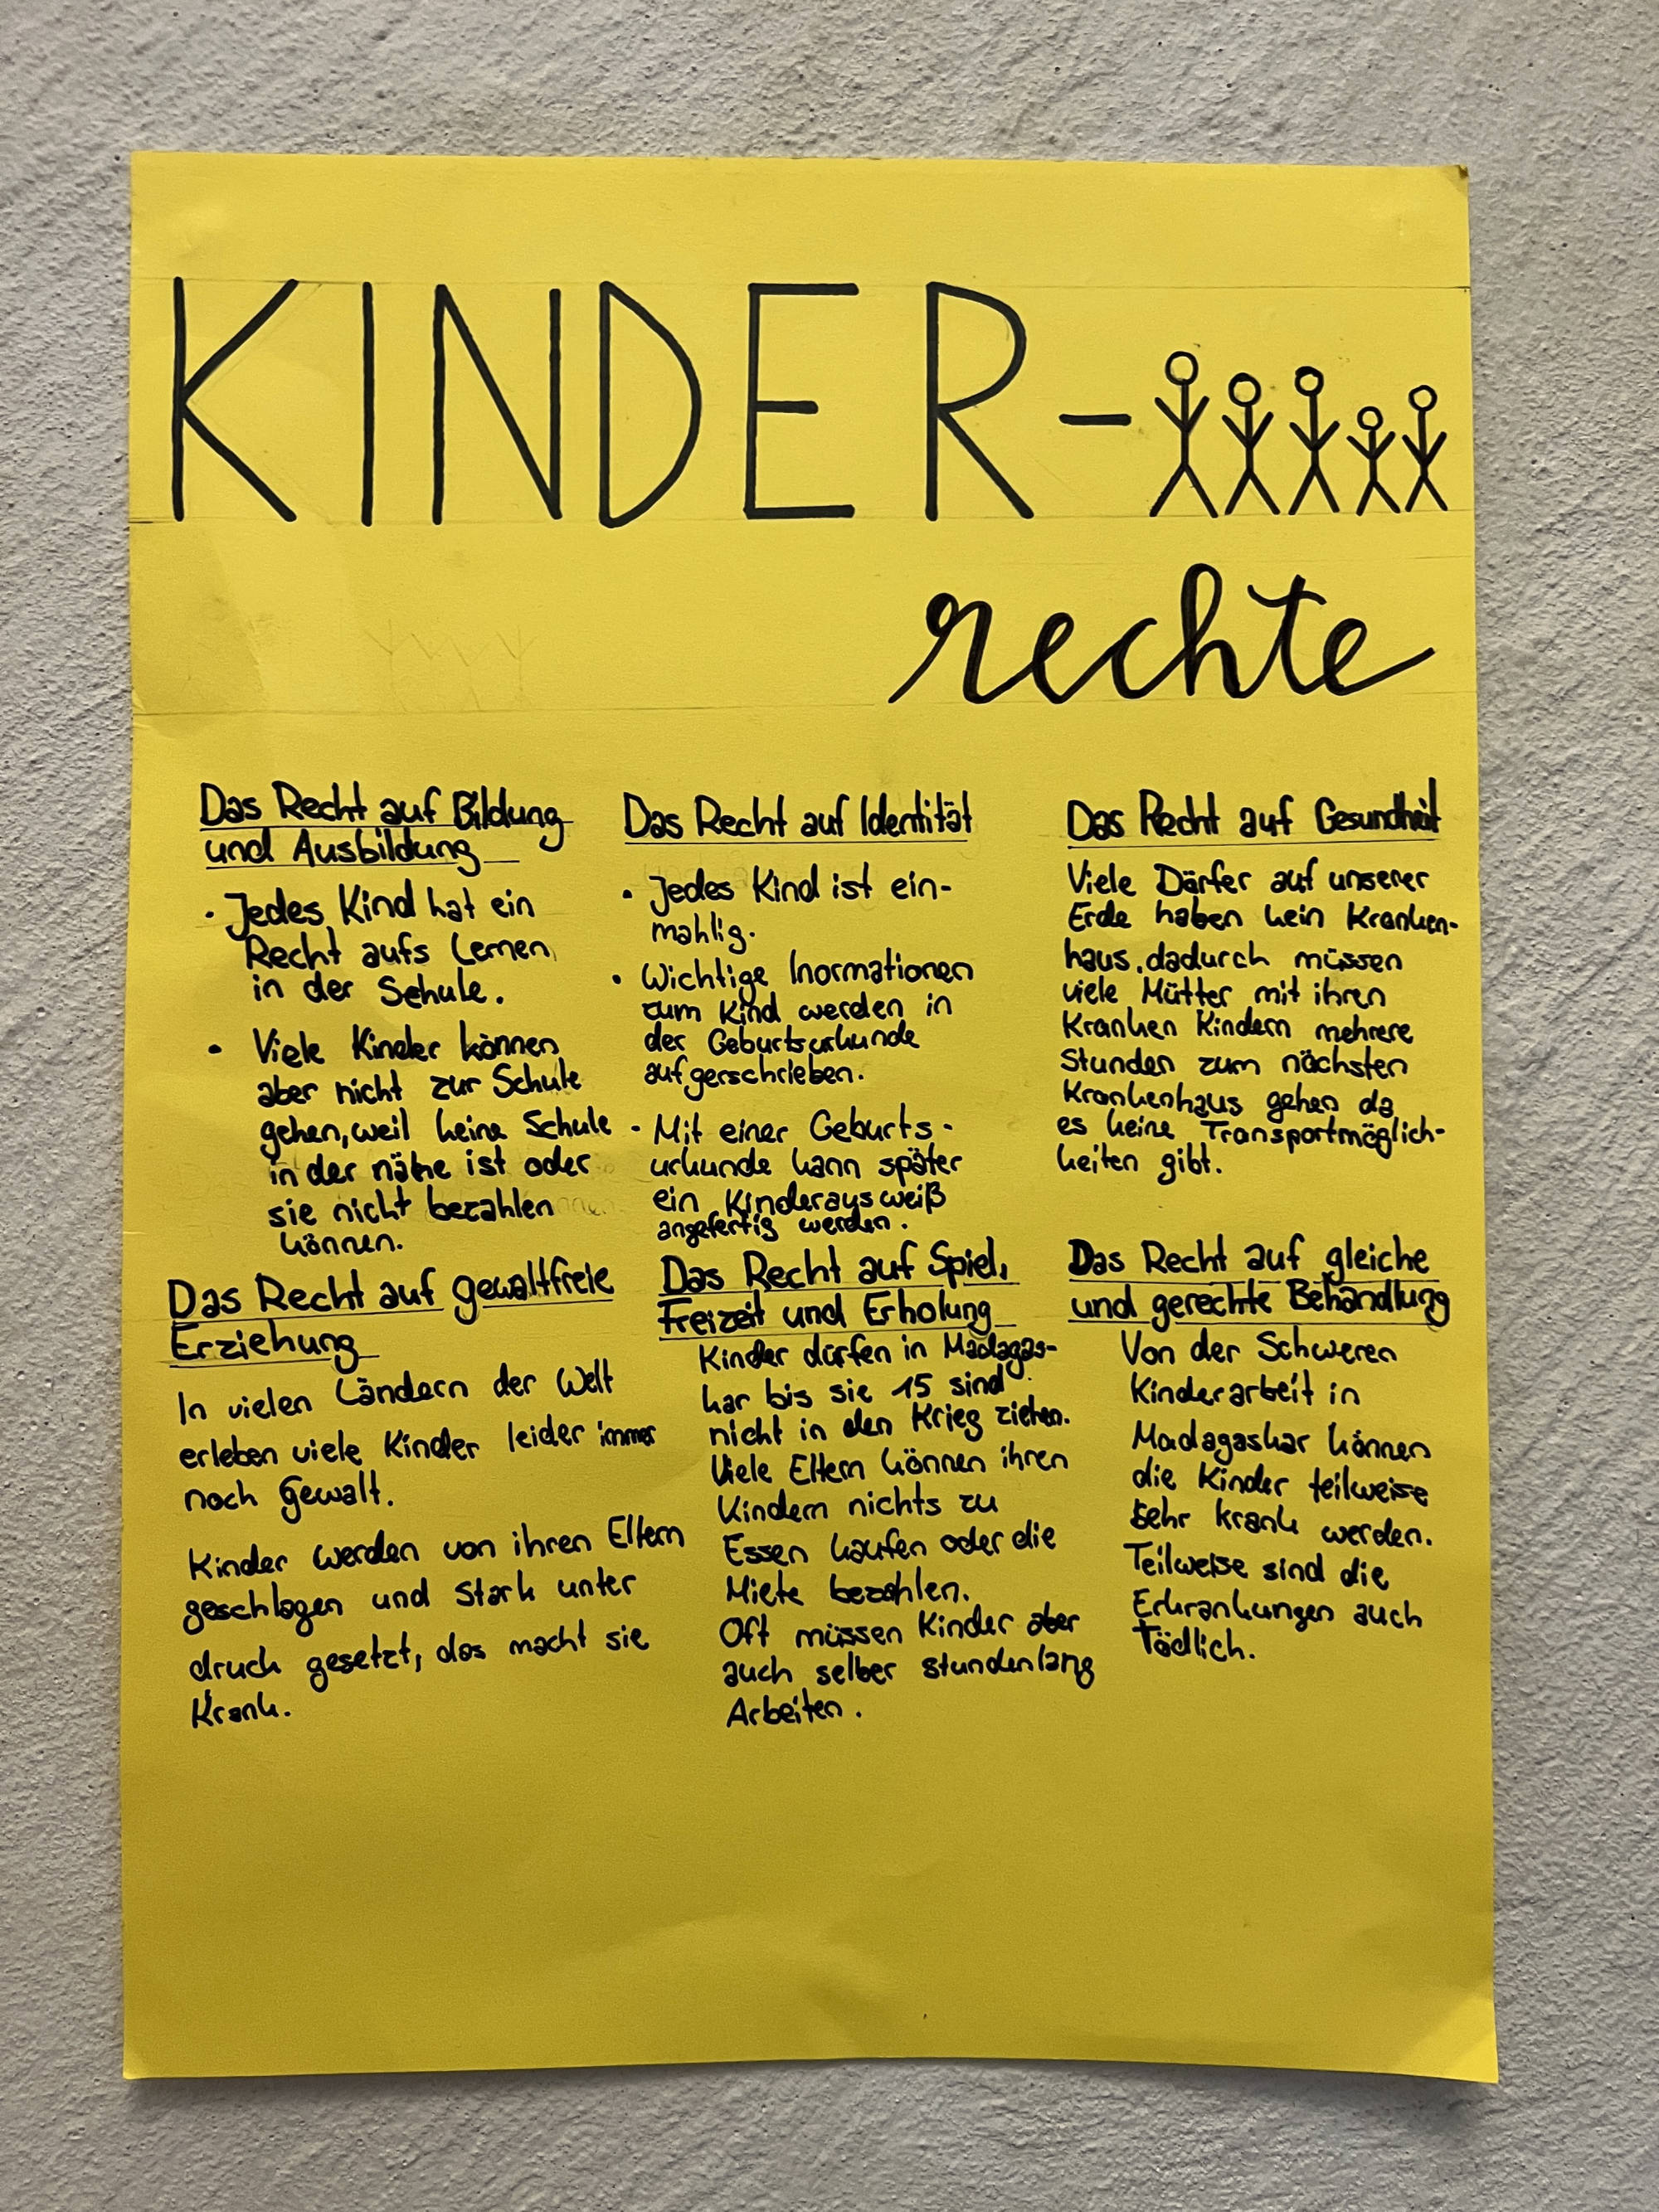 KINDER-
rechte
Das Recht auf Bildung
und Ausbildung
• Jedes Kind hat ein
Recht aufs Lernen
in der Schule.
• Viele Kinder können
aber nicht zur Schule
gehen, weil keine Schule
in der nähe ist oder
sie nicht bezahlen
können.
Das Recht auf Identität
• Jedes Kind ist ein-
mahlig.
• Wichtige Inormationen
zum Kind werden in
der Geburtsurkunde
aufgerschrieben.
• Mit einer Geburts-
urkunde kann später
ein Kinderausweiß
angefertig werden.
Das Recht auf Gesundheit
Viele Dörfer auf unserer
Erde haben kein Kranken-
haus, dadurch müssen
viele Mütter mit ihren
Kranken Kindern mehrere
Stunden zum nächsten
Krankenhaus gehen da
es keine Transportmöglich-
keiten gibt.
Das Recht auf gewaltfreie
Erziehung
In vielen Ländern der Welt
erleben viele Kinder leider immer
noch Gewalt.
Kinder werden von ihren Eltern
geschlagen und Stark unter
druck gesetzt, das macht sie
Krank.
Das Recht auf Spiel,
Freizeit und Erholung
Kinder dürfen in Madagas-
kar bis sie 15 sind
nicht in den Krieg ziehen.
Viele Eltern können ihren
Kindern nichts zu
Essen kaufen oder die
Miete bezahlen.
Oft müssen Kinder aber
auch selber stundenlang
Arbeiten.
Das Recht auf gleiche
und gerechte Behandlung
Von der Schweren
Kinderarbeit in
Madagaskar können
die Kinder teilweise
sehr krank werden.
Teilweise sind die
Erkrankungen auch
Tödlich.